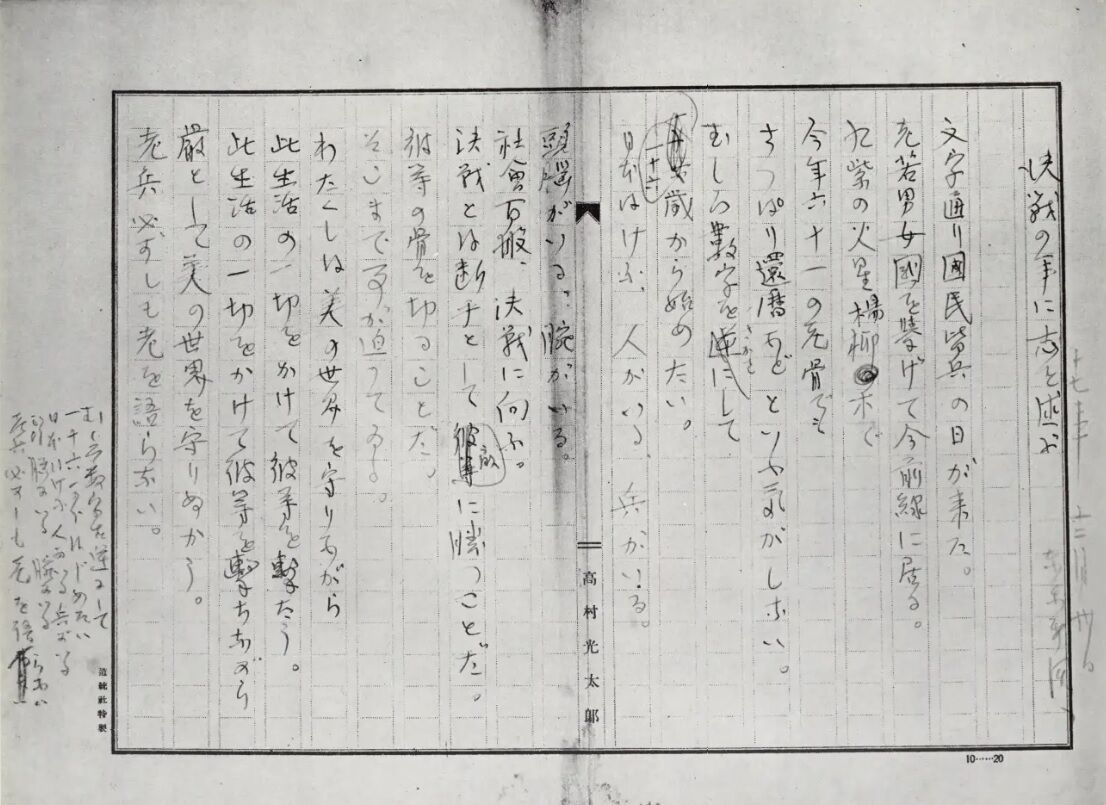 十七年十二月廿
東京新聞
決戦の年に志を述ぶ
文字通り國民皆兵の日が来た。
老若男女國を挙げて今前線に居る。
九紫の火星楊柳木で
今年六十一の老骨でも
さつぱり還暦などといふ気がしない。
むしろ数字を逆にして
さかさ
一十六歳から始めたい。
日本はけふ、人がいる、兵がいる。
高村光太郎
頭脳がいる、腕がいる。
社會百般、決戦に向ふ。
決戦とは断乎として彼等敵に勝つことだ。
彼等の骨を切ることだ。
そこまで事が迫つてゐる。
わたくしは美の世界を守りながら
此生活の一切をかけて彼等を撃たう。
此生活の一切をかけて彼等を撃ちながら
厳として美の世界を守りぬかう。
老兵必ずしも老を語らない。
むしろ数字を逆にして
一十六からはじめたい
日本はけふ人がいる兵がいる
頭脳がいる 腕がいる
老兵必ずしも老を語らない
社特製
10……20